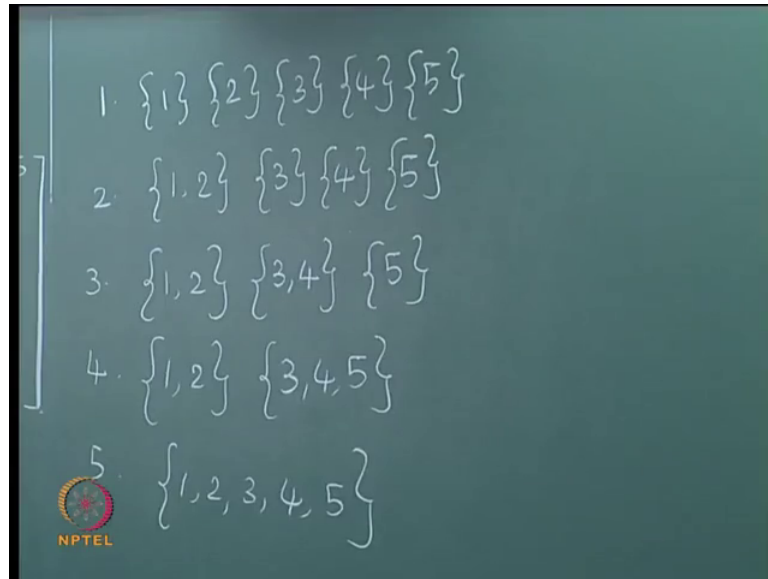 1. {1} {2} {3} {4} {5}
2. {1,2} {3} {4} {5}
3. {1,2} {3,4} {5}
4. {1,2} {3,4,5}
5. {1,2,3,4,5}
NPTEL